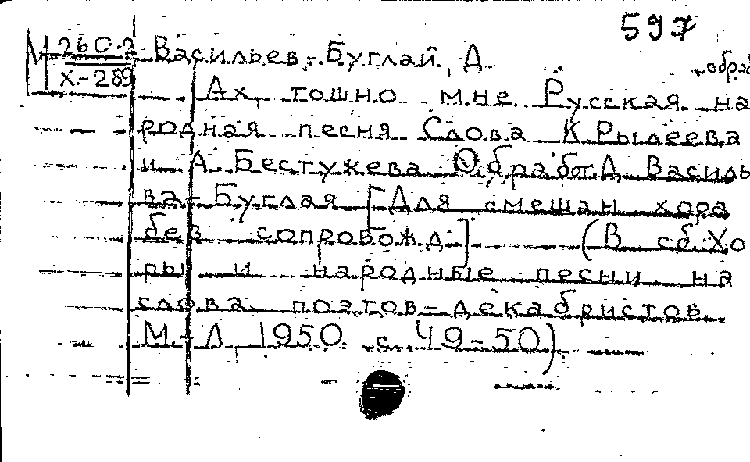 597
М 260-2 Васильев-Буглай, Д.
Х-289 обраб
Ах, тошно мне Русская на
родная песня Слова К Рылеева
и А. Бестужева Обработ. Д Василь
ва-Буглая [Для смешан хора
без сопровожд.] (В сб: Хо
ры и народные песни на
слова поэтов-декабристов.
М-Л, 1950 с. 49-50)